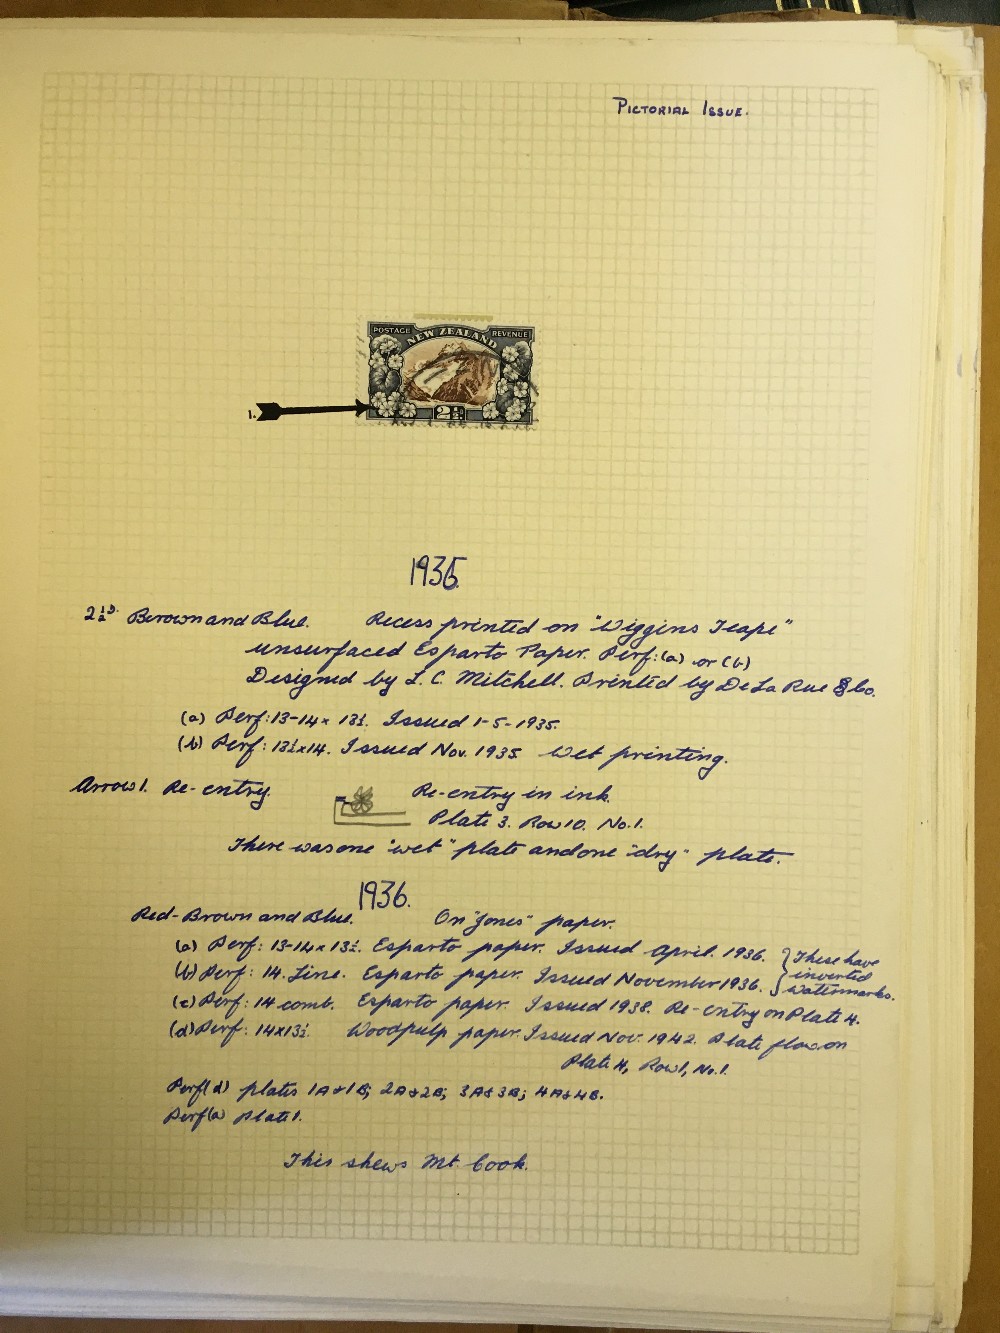 PICTORIAL ISSUE.
POSTAGE NEW ZEALAND REVENUE
1.
2½
1935.
2½ᴰ· Brown and Blue. Recess printed on "Wiggins Teape"
unsurfaced Esparto Paper. Perf: (a) or (b)
Designed by L. C. Mitchell. Printed by De La Rue & Co.
(a) Perf: 13-14 x 13½. Issued 1-5-1935.
(b) Perf: 13½x14. Issued Nov. 1935. Wet printing.
Arrow 1. Re-entry. Re-entry in ink.
Plate 3. Row 10. No. 1.
There was one "wet" plate and one "dry" plate.
1936.
Red-Brown and Blue. On "Jones" paper.
(a) Perf: 13-14 x 13½. Esparto paper. Issued April. 1936. } These have
(b) Perf: 14. Line. Esparto paper. Issued November 1936. inverted
watermarks.
(c) Perf: 14 comb. Esparto paper. Issued 1938. Re-entry on Plate 4.
(d) Perf: 14x13½ Woodpulp paper. Issued Nov. 1942. Plate flaw on
Plate 4, Row 1, No. 1.
Perf (d) plates 1A & 1B; 2A & 2B; 3A & 3B; 4A & 4B.
Perf (a) Plate 1.
This shews Mt. Cook.